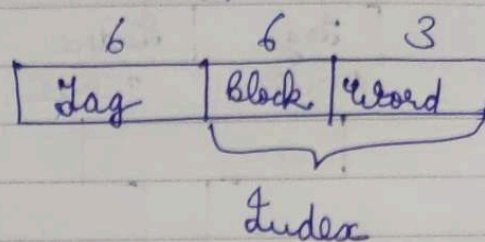 6 6 3
Tag Block Word
Index